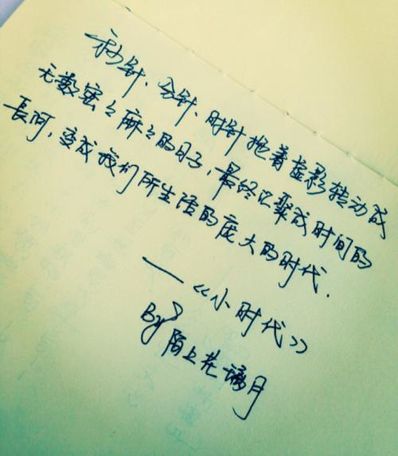 秒针、分针、时针拖着虚影转动成
无数密密麻麻的日子,最终汇聚成时间的
长河,变成我们所生活的庞大的时代.
——《小时代》
By 陌上花谚月